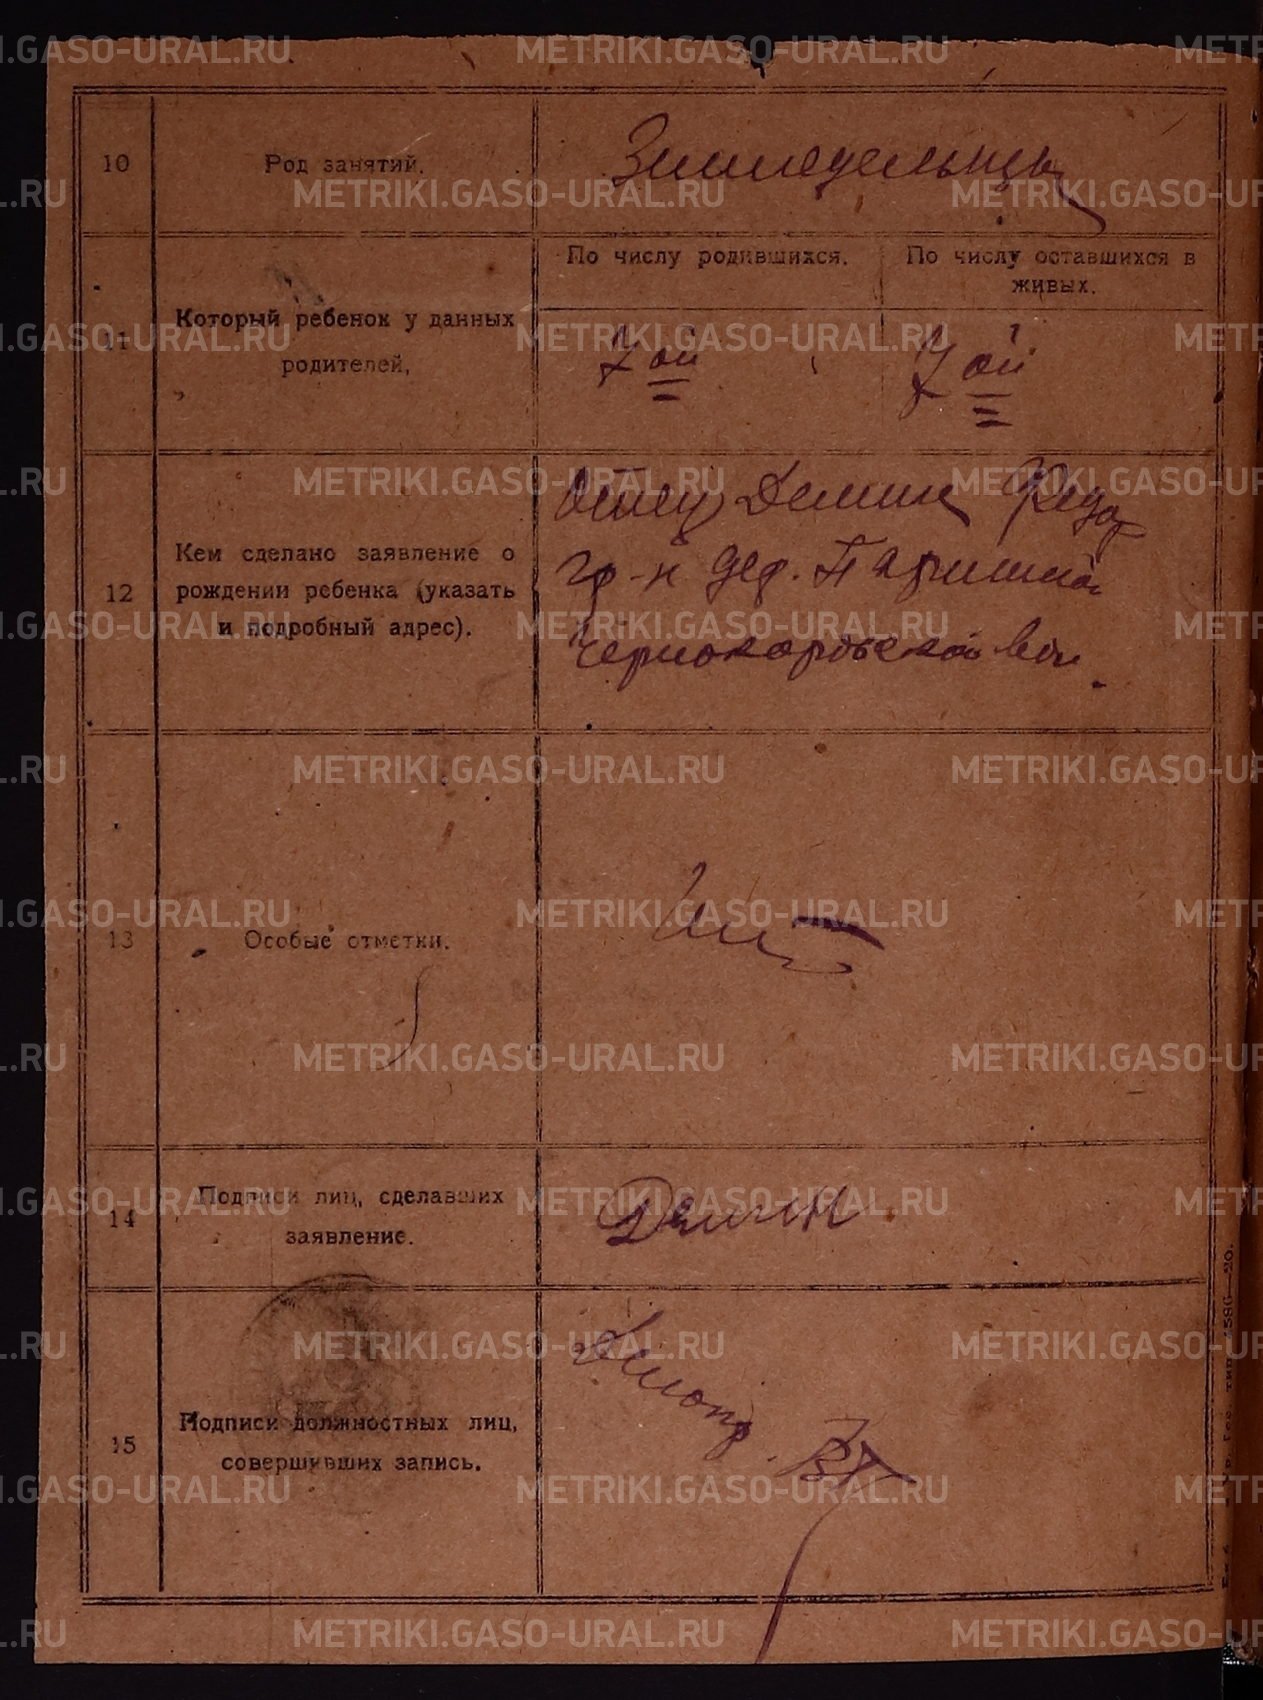 10
Род занятий.
Земледельцы
11
Который ребенок у данных
родителей,
По числу родившихся.
По числу оставшихся в
живых.
7ой
7ой
12
Кем сделано заявление о
рождении ребенка (указать
и подробный адрес).
Отец Демин Федор
гр-н дер.
вол.
13
Особые отметки.
Нет
14
Подписи лиц, сделавших
заявление.
Демин
15
Подписи должностных лиц,
совершивших запись.
METRIKI.GASO-URAL.RU